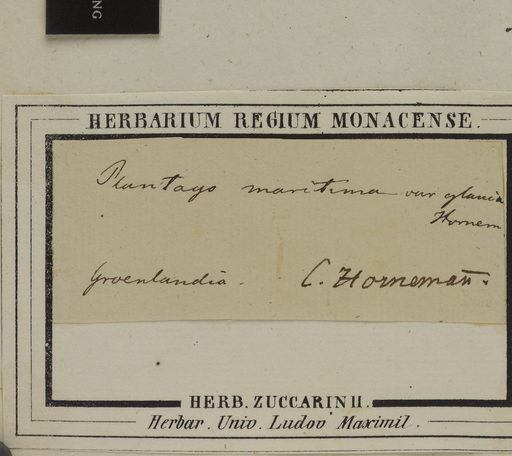 NG
HERBARIUM REGIUM MONACENSE.
Plantago maritima var glauca
Hornem
Groenlandia. C. Horneman̅.
HERB. ZUCCARINII.
Herbar. Univ. Ludov Maximil.